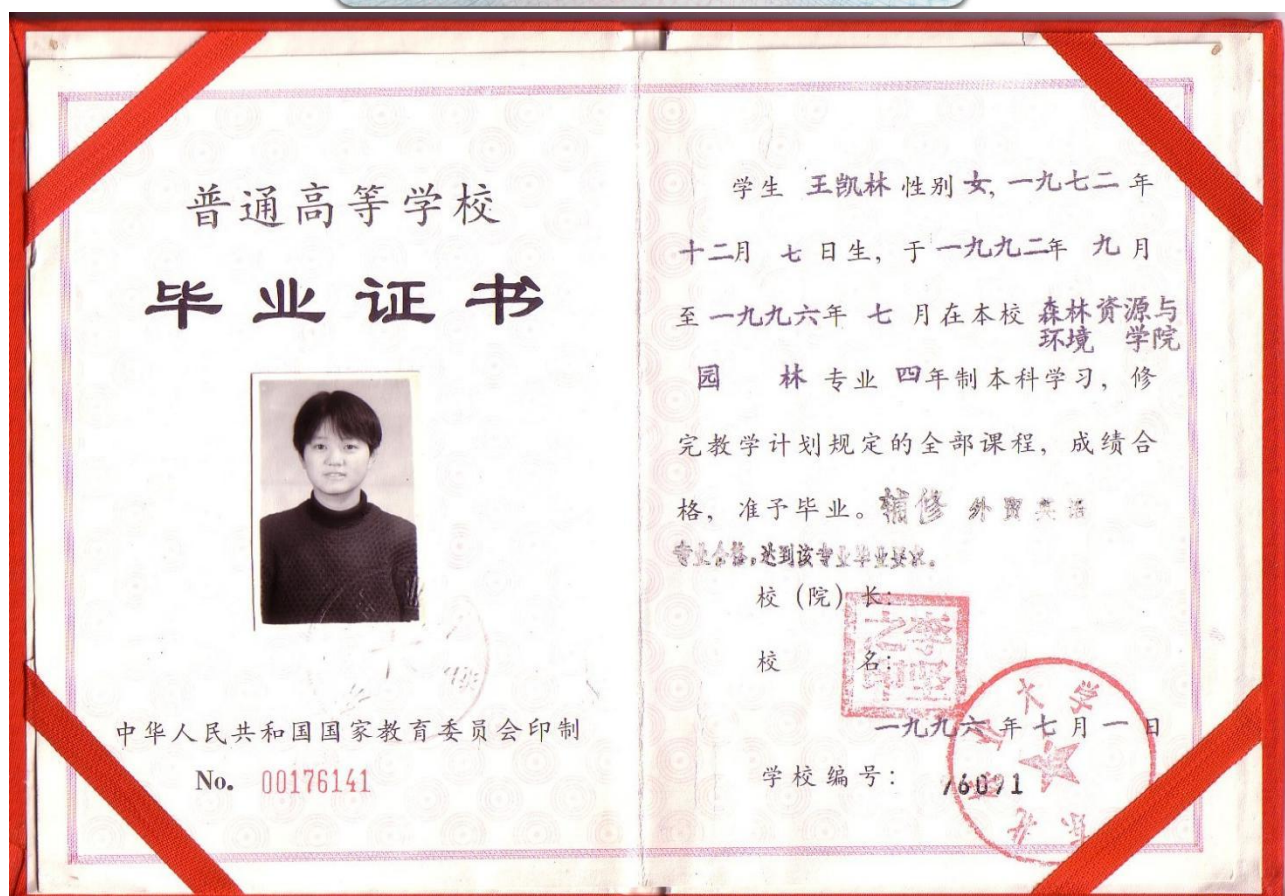 普通高等学校
毕业证书
中华人民共和国国家教育委员会印制
No. 00176141
学生 王凯林 性别 女, 一九七二 年
十二月 七 日生, 于 一九九二年 九 月
至 一九九六年 七 月在本校 森林资源与
环境 学院
园 林 专业 四年制本科学习, 修
完教学计划规定的全部课程, 成绩合
格, 准予毕业。辅修 外贸英语
专业合格,达到该专业毕业要求。
校 (院) 长:
李坚之印
校 名:
一九九六 年 七 月 一 日
学校编号: 76091
东北林业大学